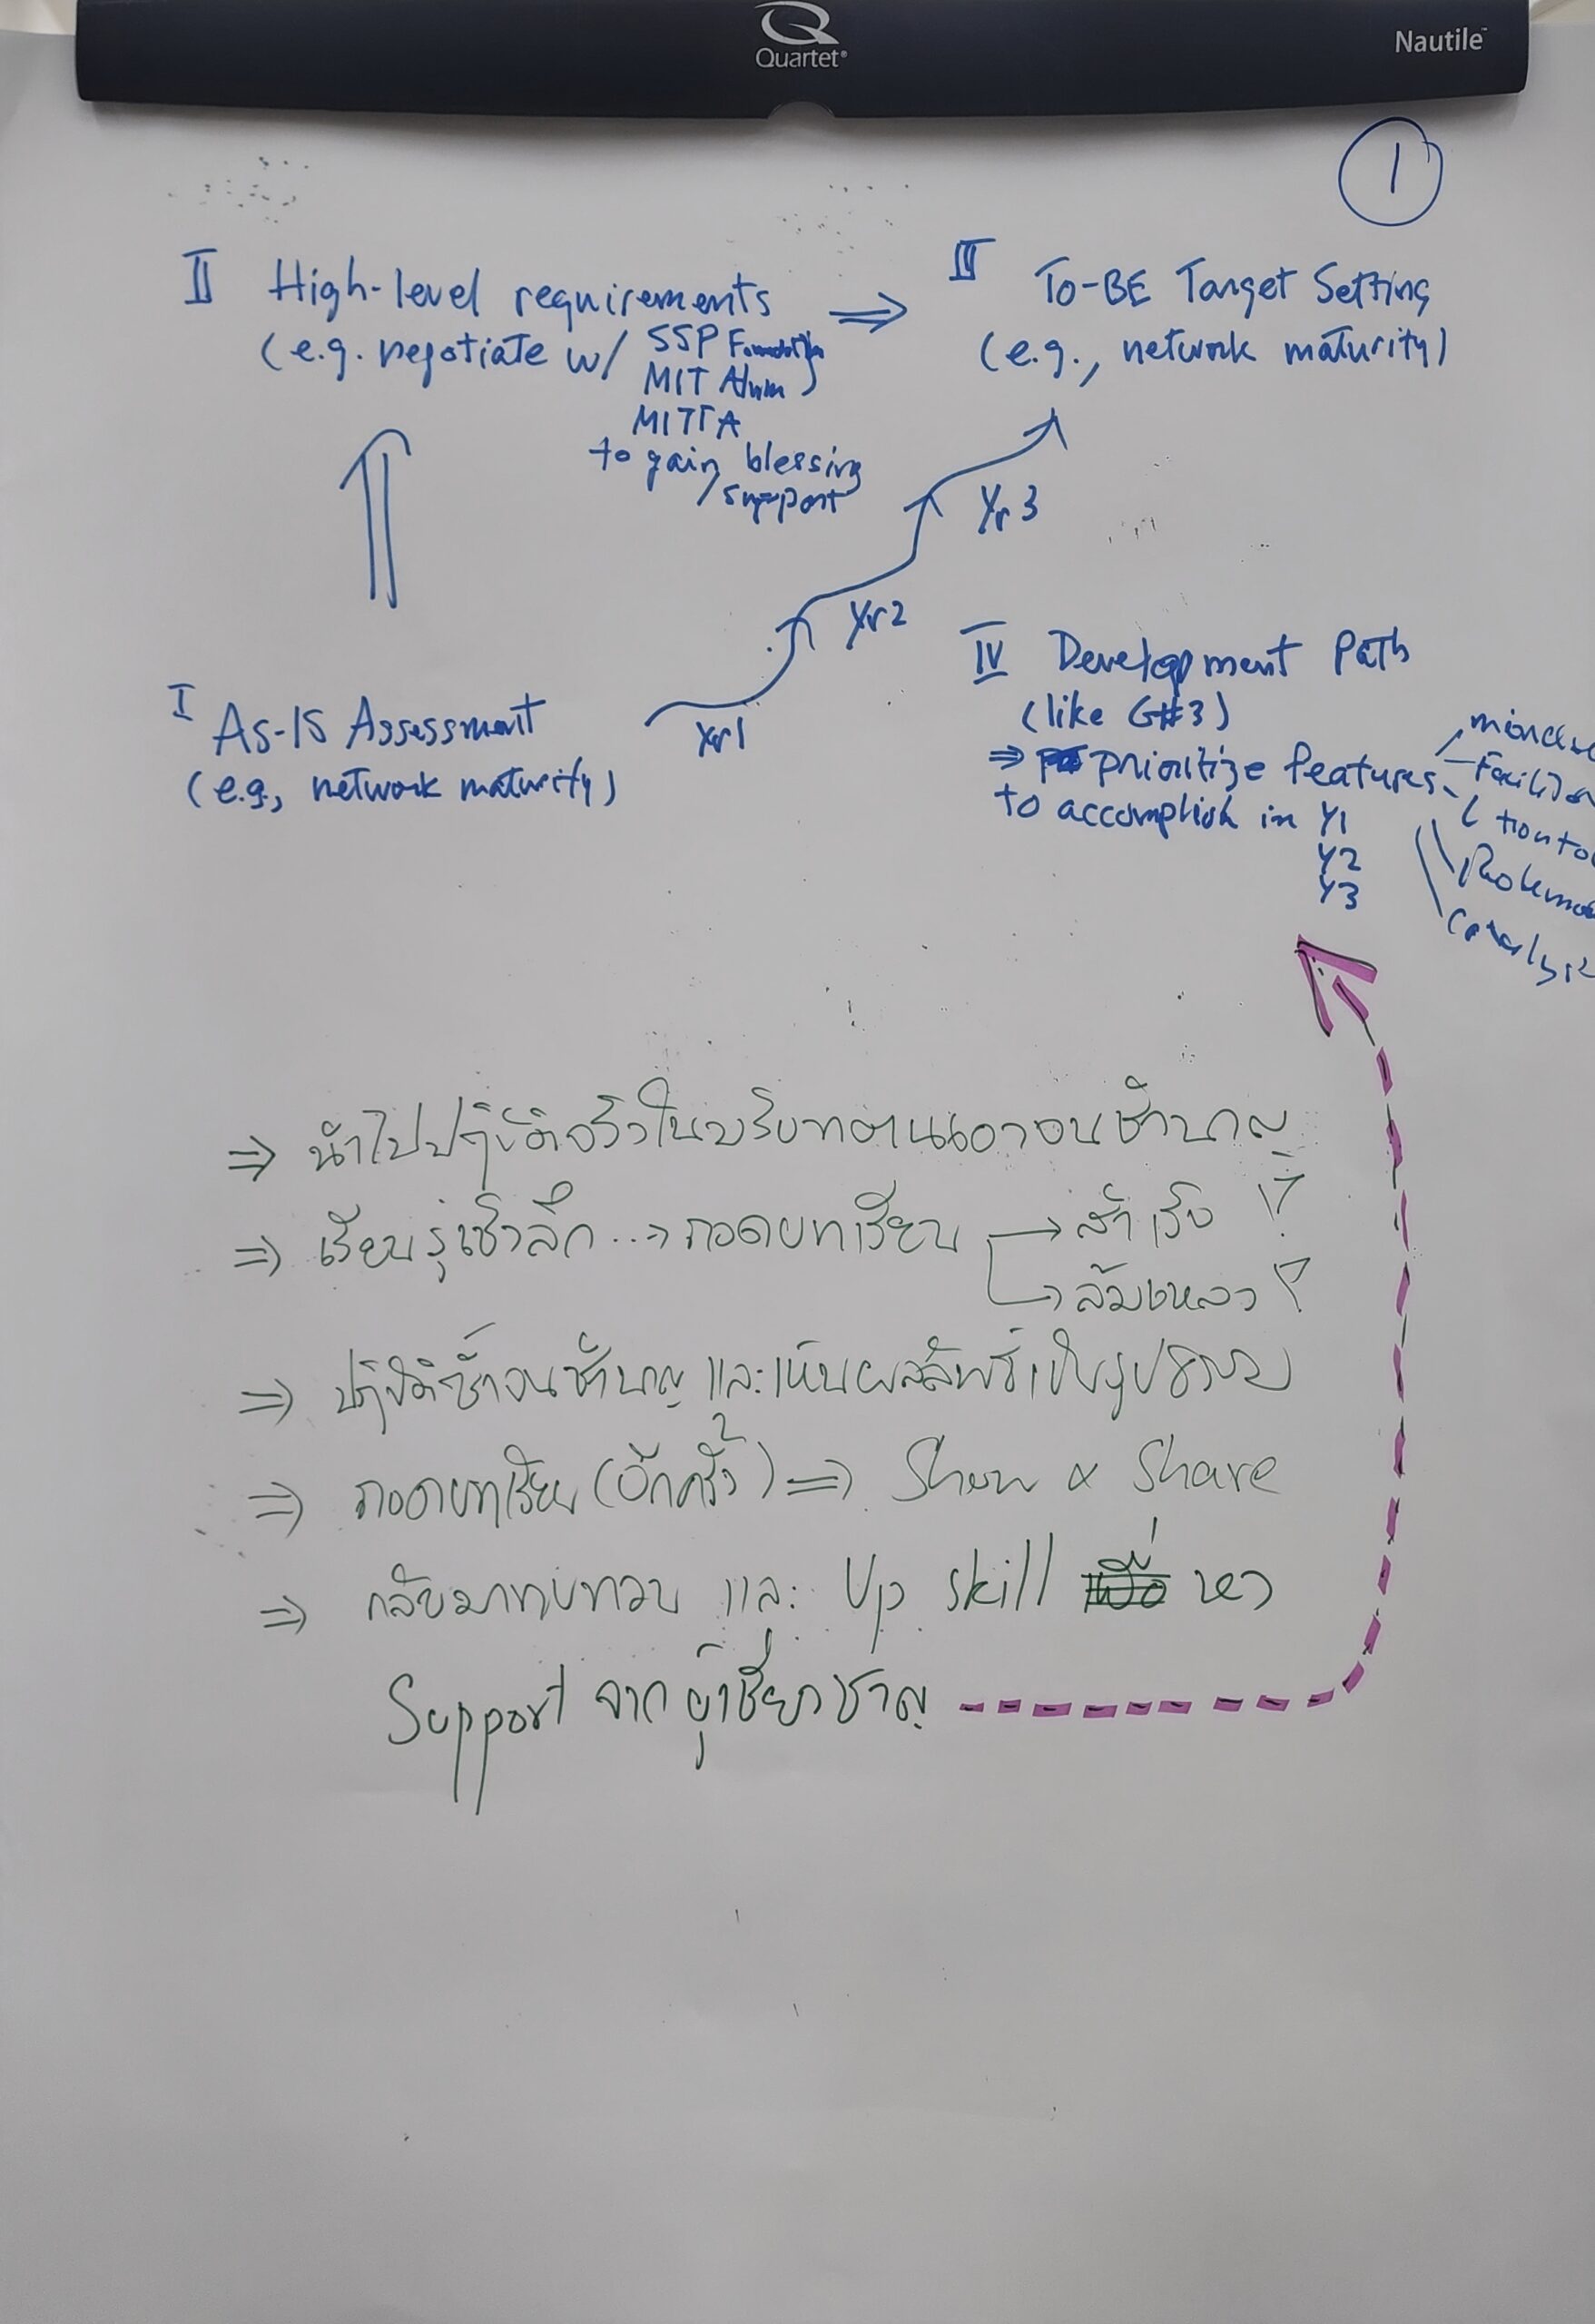 Quartet®
Nautile™
1
II High-level requirements
(e.g. negotiate w/ SSP Foundation
MIT Alum)
MITTA
to gain blessing
/support
III To-BE Target Setting
(e.g., network maturity)
Yr 3
Yr2
Yr1
I As-IS Assessment
(e.g., network maturity)
IV Development Path
(like G#3)
⇒ prioritize features
to accomplish in Y1
Y2
Y3
⇒ นำไปปฏิบัติจริงในบริบทตนเองจนชำนาญ
⇒ เรียนรู้เชิงลึก..→ ถอดบทเรียน → สำเร็จ ?
→ ล้มเหลว ?
⇒ ปฏิบัติซ้ำจนชำนาญ และเห็นผลลัพธ์เป็นรูปธรรม
⇒ ถอดบทเรียน (อีกครั้ง) ⇒ Show & Share
⇒ กลับมาทบทวน และ Up skill หา
Support จากผู้เชี่ยวชาญ